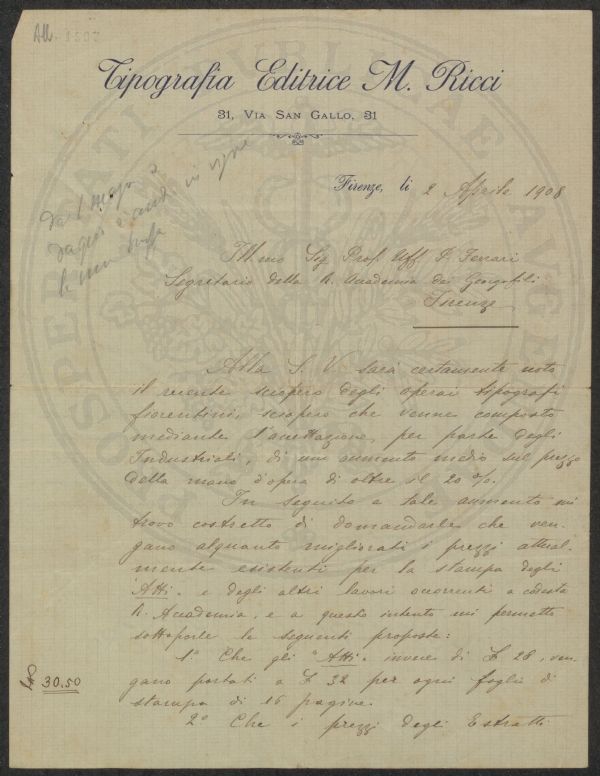 All. 1502
Tipografia Editrice M. Ricci
31, Via San Gallo, 31
Firenze, li 2 Aprile 1908
Ill.mo Sig Prof. Uff P. Ferrari
Segretario della R. Accademia dei Georgofili
Firenze
Alla S. V. sarà certamente noto
il recente sciopero degli operai tipografi
fiorentini, sciopero che venne composto
mediante l'accettazione, per parte degli
Industriali, di un aumento medio sul prezzo
della mano d'opera di oltre il 20%.
In seguito a tale aumento mi
trovo costretto di domandarle che ven-
gano alquanto migliorati i prezzi attual-
mente esistenti per la stampa degli
"Atti" e degli altri lavori occorrenti a codesta
R. Accademia, e a questo intento mi permetto
sottoporle le seguenti proposte:
1º Che gli "Atti" invece di £ 28, ven-
gano portati a £ 32 per ogni foglio di
stampa di 16 pagine.
30.50
2º Che i prezzi degli Estratti
PROSPERITATI PUBLICAE AUGENDAE